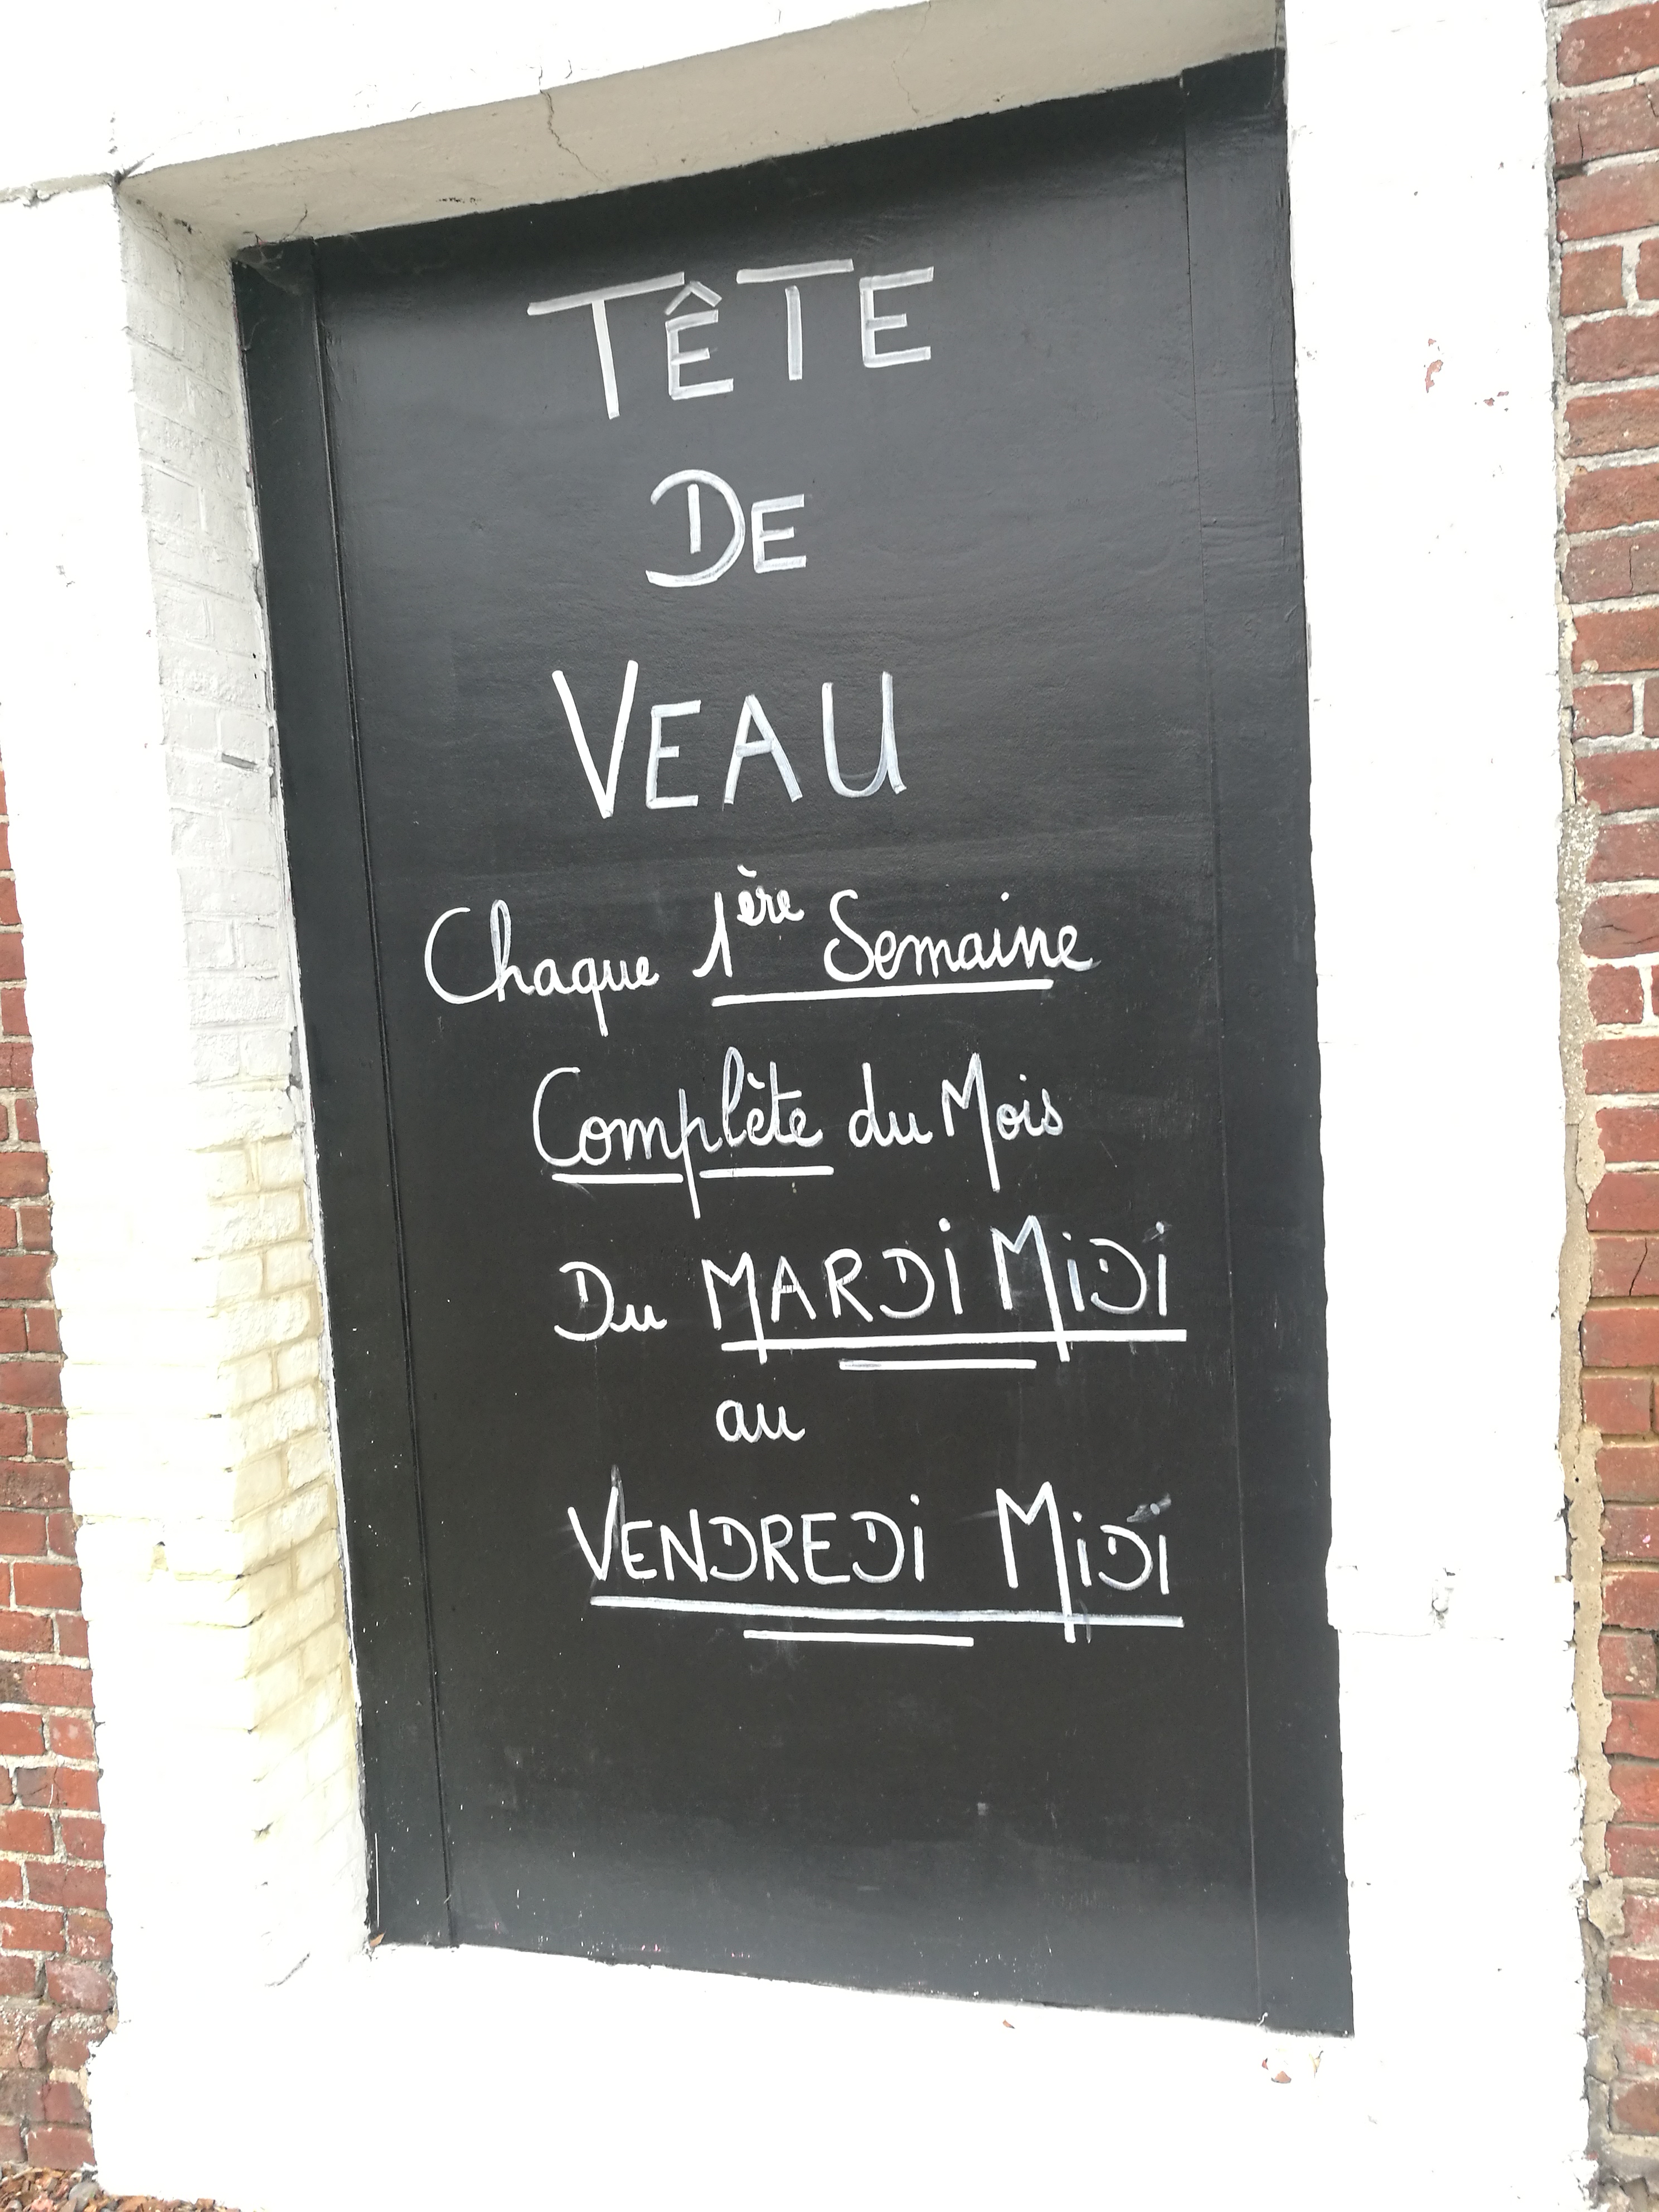 TÊTE
DE
VEAU
Chaque 1ère Semaine
Complète du Mois
Du MARDi MiDi
au
VENDREDi MiDi